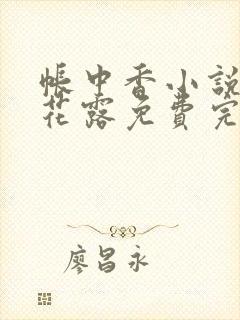 帳中香小說
花露免費完
廖昌永